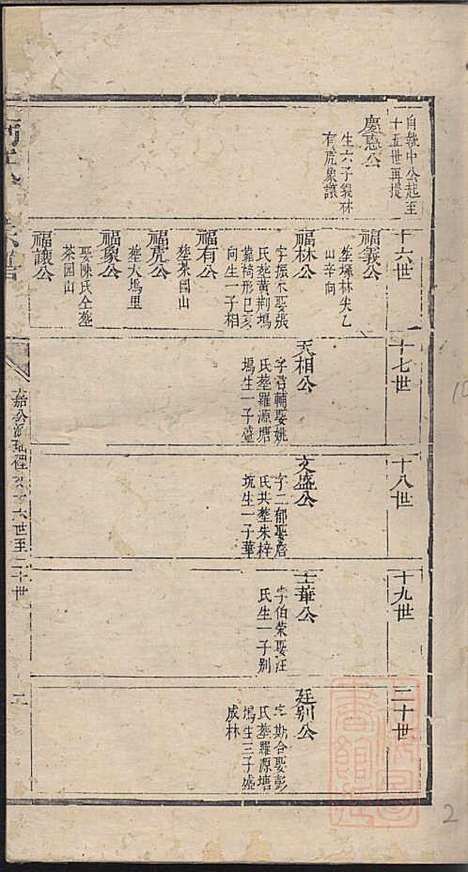 自執中公起至
十五世再提
慶惠公
生六子義林
有虎象讓
十六世
福義公
塟塚林尖乙
山辛向
福林公
字振木娶張
氏塟黃荆塢
靠椅形巳亥
向生一子相
福有公
塟菜園山
福虎公
塟大塢里
福象公
娶陳氏仝塟
茶園山
福讓公
十七世
天相公
字君輔娶姚
氏塟羅源塘
塢生一子盛
十八世
文盛公
字二郁娶詹
氏共塟朱梓
坑生一子華
十九世
士華公
字伯榮娶汪
氏生一子別
二十世
廷别公
字斯合娶彭
氏塟羅源塘
塢生三子盛
成林
六世至二十世
2